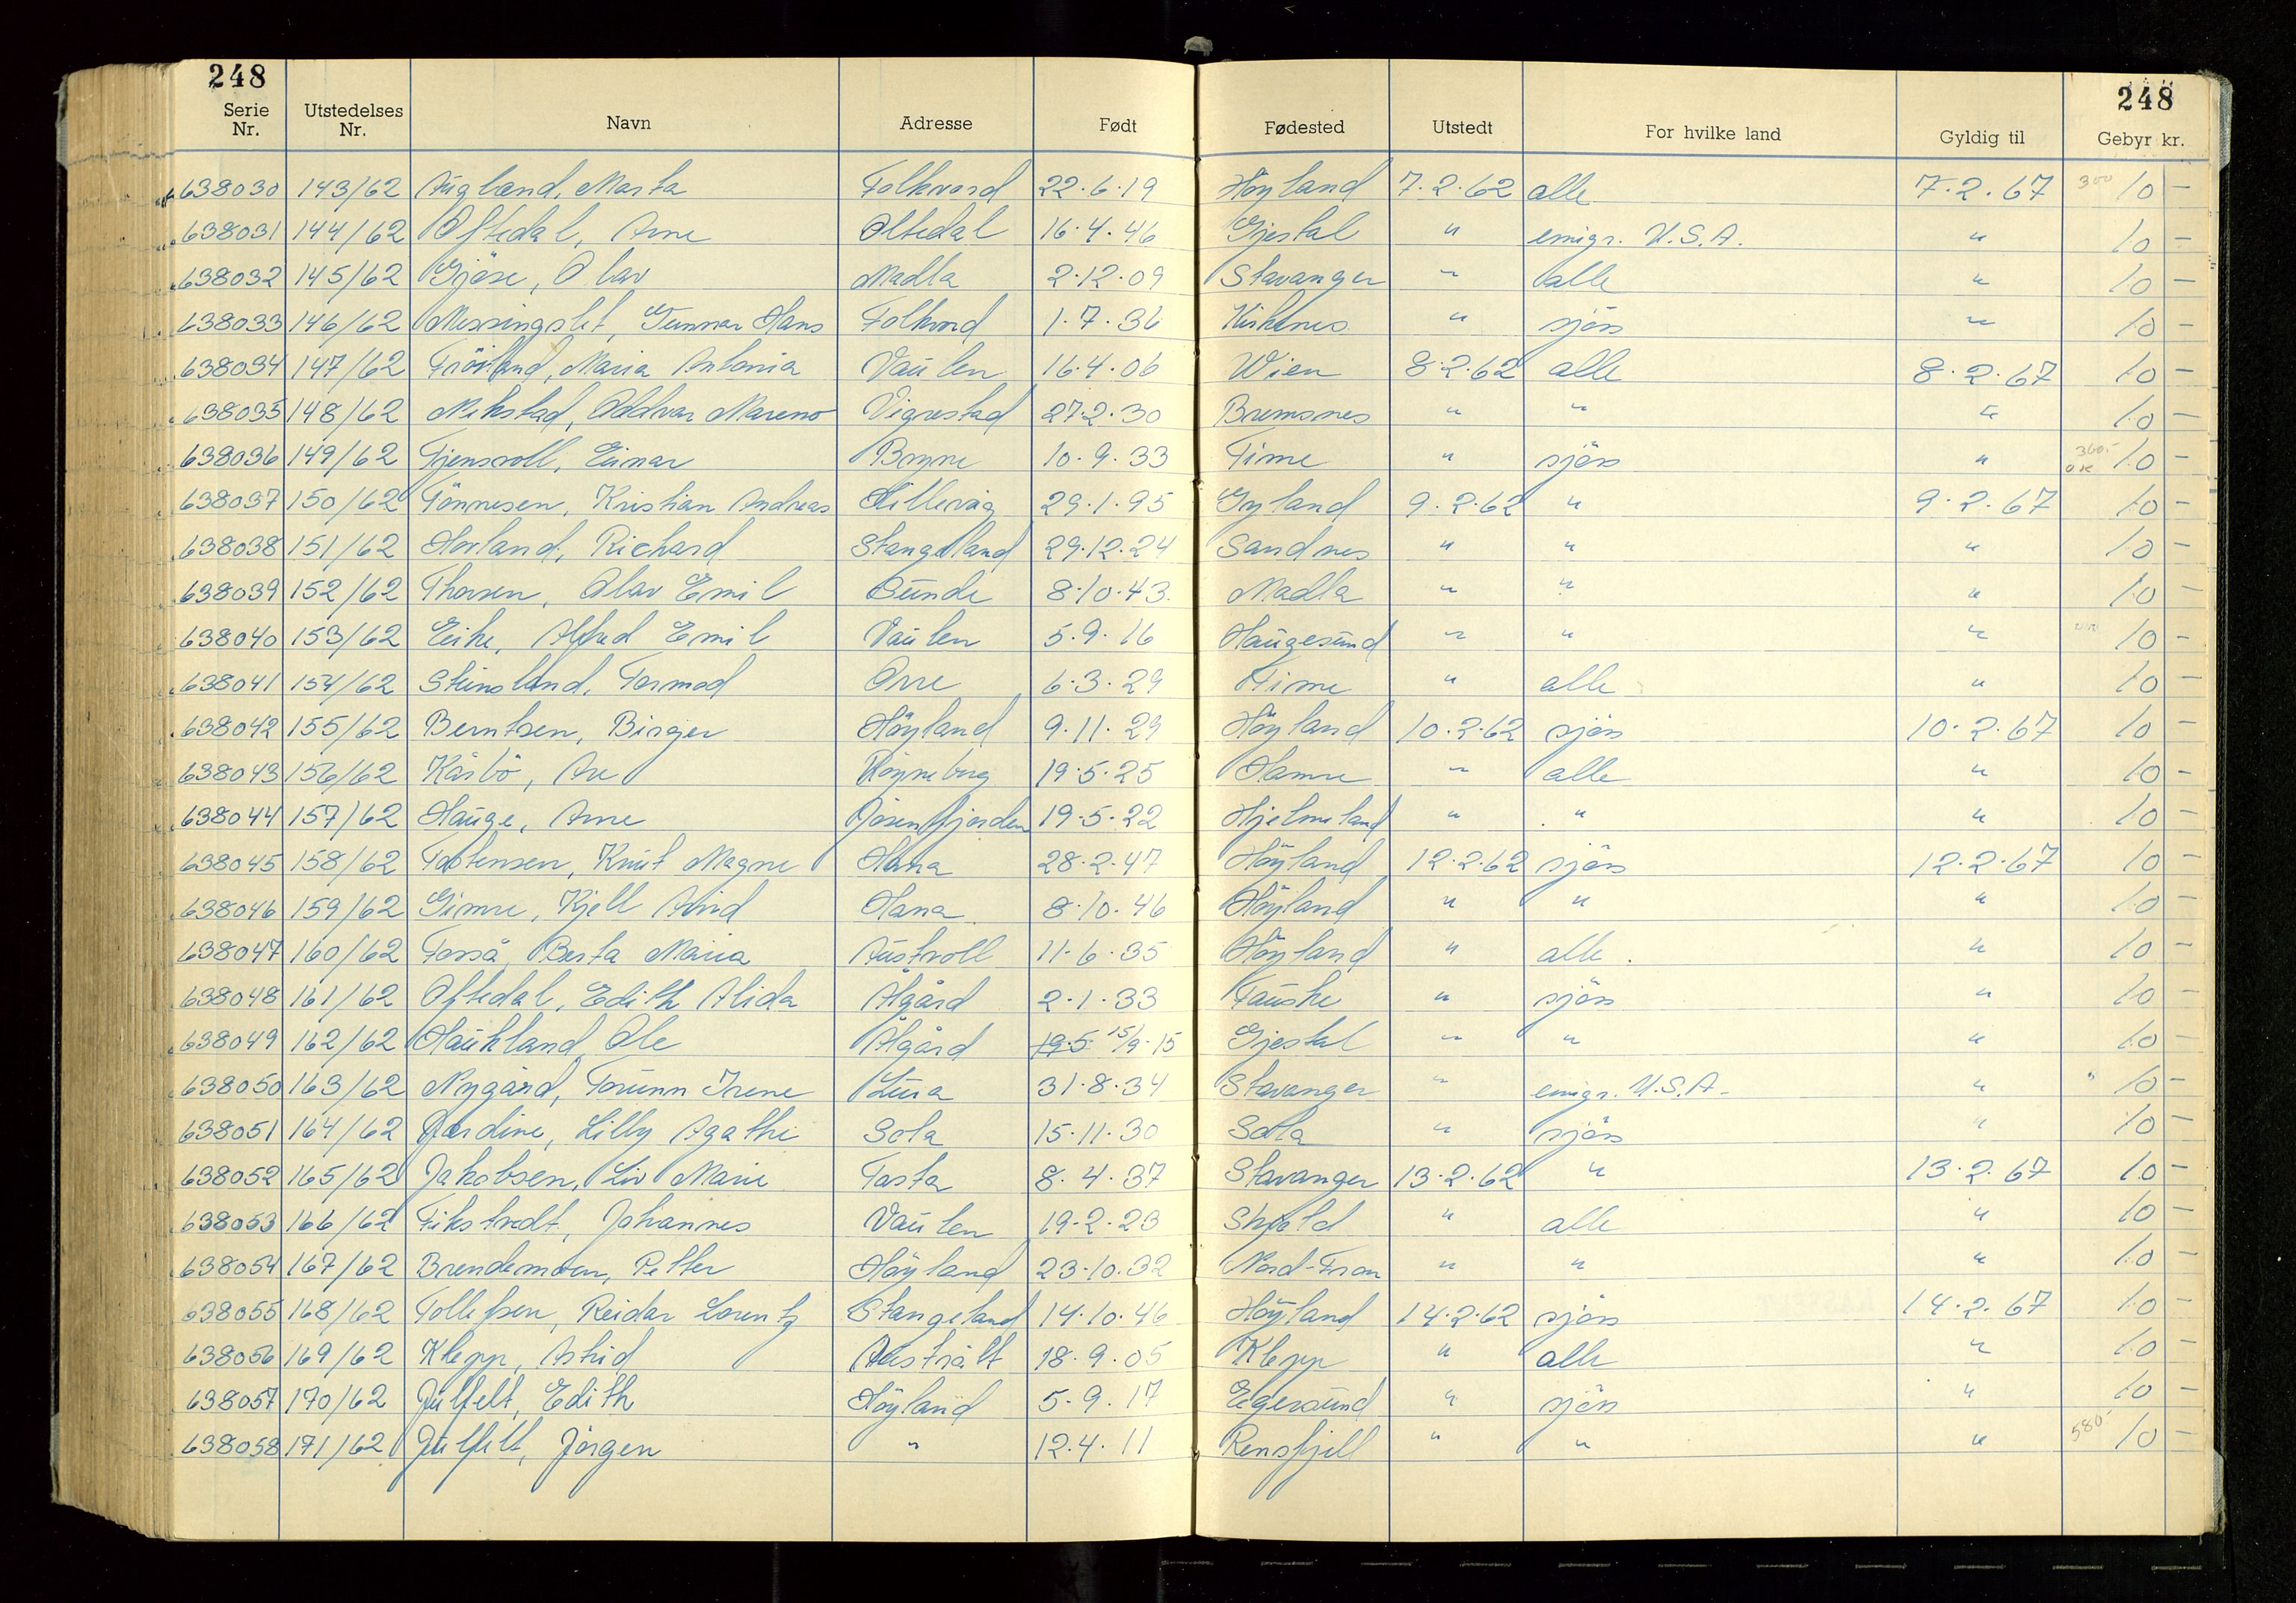 248 248
Serie Nr. Utstedelses Nr. Navn Adresse Født Fødested Utstedt For hvilke land Gyldig til Gebyr kr.
638030 143/62 Augland, Marta Folkvord 22.6.19 Høyland 7.2.62 alle 7.2.67 300 10 -
638031 144/62 Oftedal, Arne Oltedal 16.4.46 Gjestal " emigr. U.S.A. " 10 -
638032 145/62 Gjöse, Olav Madla 2.12.09 Stavanger " alle " 10 -
638033 146/62 Messingslet, Gunnar Hans Folkvord 1.7.36 Kirkenes " sjöss " 10 -
638034 147/62 Fröiland, Maria Antonia Vaulen 16.4.06 Wien 8.2.62 alle 8.2.67 10 -
638035 148/62 Mekstad, Oddvar Mareno Vigrestad 27.2.30 Bremsnes " " " 10 -
638036 149/62 Tjensvoll, Einar Bryne 10.9.33 Time " sjöss " 360.- 10 -
638037 150/62 Tönnesen, Kristian Andreas Hillevåg 29.1.95 Gyland 9.2.62 " 9.2.67 10 -
638038 151/62 Hovland, Richard Stangeland 29.12.24 Sandnes " " " 10 -
638039 152/62 Thorsen, Olav Emil Sunde 8.10.43. Madla " " " 10 -
638040 153/62 Eike, Alfred Emil Vaulen 5.9.16 Haugesund " " " 10 -
638041 154/62 Steinsland, Tormod Orre 6.3.29 Time " alle " 10 -
638042 155/62 Berntsen, Birger Höyland 9.11.29 Höyland 10.2.62 sjöss 10.2.67 10 -
638043 156/62 Kårbö, Are Röyneberg 19.5.25 Hamre " alle " 10 -
638044 157/62 Hauge, Arne Jösenfjorden 19.5.22 Hjelmeland " " " 10 -
638045 158/62 Torstensen, Knut Magne Hana 28.2.47 Höyland 12.2.62 sjöss 12.2.67 10 -
638046 159/62 Gimre, Kjell Arvid Hana 8.10.46 Höyland " " " 10 -
638047 160/62 Fosså, Berta Maria Austvoll 11.6.35 Höyland " alle. " 10 -
638048 161/62 Oftedal, Edith Alida Ålgård 2.1.33 Fauske " sjöss " 10 -
638049 162/62 Haukland Ole Ålgård 19.5 15/9.15 Gjestal " " " 10 -
638050 163/62 Nygård, Torunn Irene Lura 31.8.34 Stavanger " emigr. U.S.A. " 10 -
638051 164/62 Jardine, Lilly Agathe Sola 15.11.30 Sola " sjöss " 10 -
638052 165/62 Jakobsen, Liv Marie Tasta 8.4.37 Stavanger 13.2.62 " 13.2.67 10 -
638053 166/62 Fikstvedt, Johannes Vaulen 19.2.23 Skjold " alle " 10 -
638054 167/62 Brendemoen, Petter Höyland 23.10.32 Nord-Fron " " " 10 -
638055 168/62 Tollefsen, Reidar Lorentz Stangeland 14.10.46 Höyland 14.2.62 sjöss 14.2.67 10 -
638056 169/62 Klepp, Astrid Austrått 18.9.05 Klepp " alle " 10 -
638057 170/62 Julfelt, Edith Höyland 5.9.17 Egersund " sjöss " 10 -
638058 171/62 Julfelt, Jörgen " 12.4.11 Rensfjell " " " 580.- 10 -